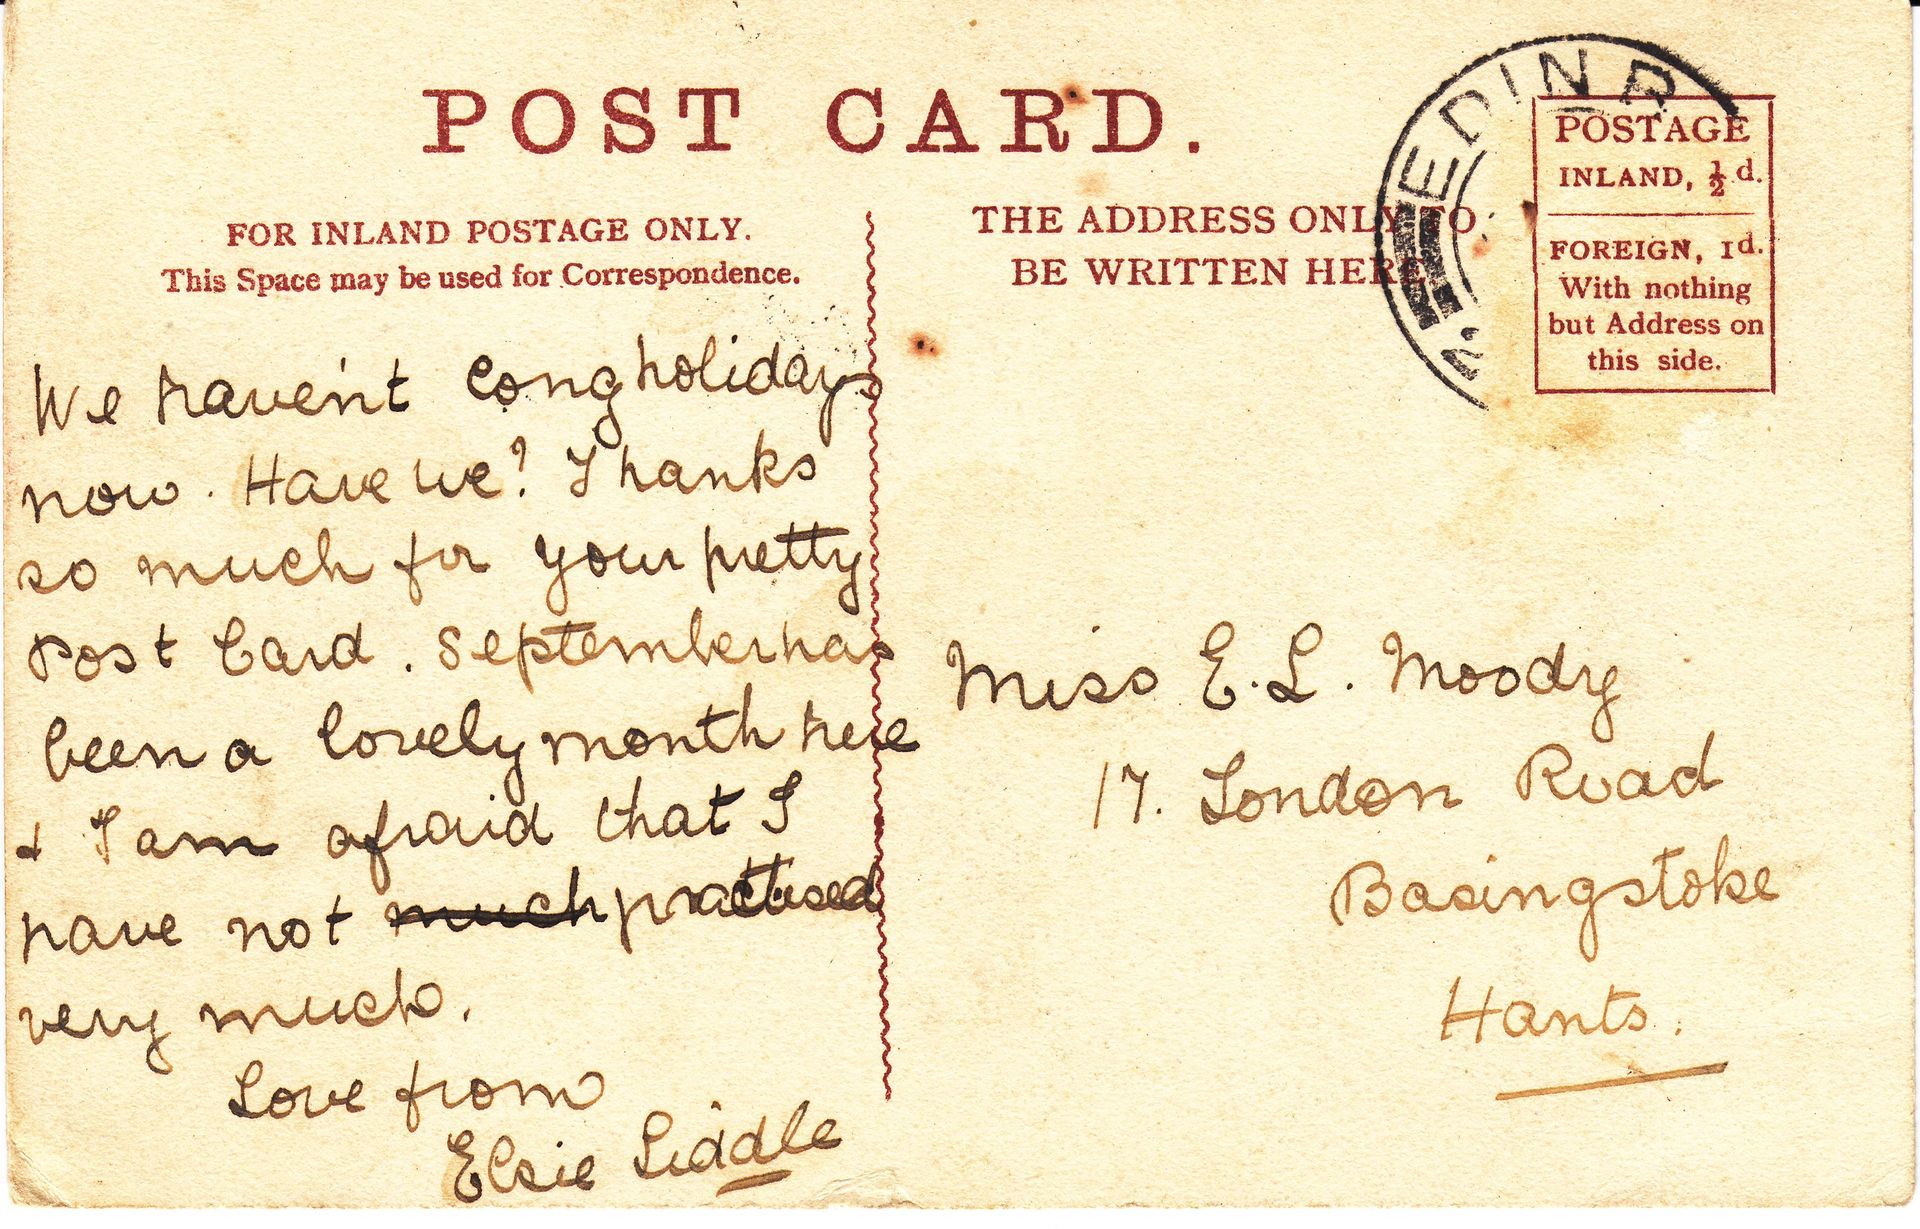 POST CARD.
FOR INLAND POSTAGE ONLY.
This Space may be used for Correspondence.
THE ADDRESS ONLY TO
BE WRITTEN HERE
EDINB
POSTAGE
INLAND, ½d.
FOREIGN, 1d.
With nothing
but Address on
this side.
We haven't long holidays
now. Have we? Thanks
so much for your pretty
Post Card. September has
been a lovely month here
& I am afraid that I
have not much practised
very much.
Love from
Elsie Liddle
Miss E. L. Moody
17. London Road
Basingstoke
Hants.